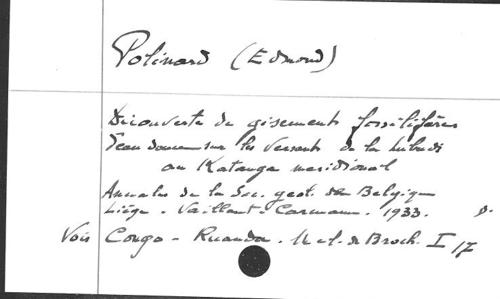 Polinard (Edmond)
Découverte de gisements fossilifères
d'eau douce sur les versants de la Lubudi
au Katanga méridional
Annales de la Soc. géol. de Belgique
Liège. Vaillant-Carmanne. 1933.
Voir Congo - Ruanda. Mél. de Broch. I 17